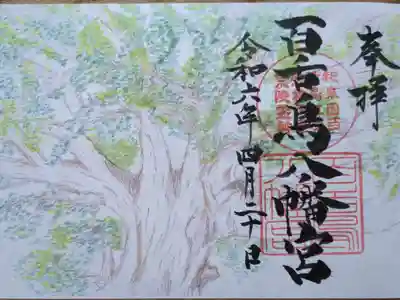 奉拝
百舌鳥八幡宮
令和六年四月二十日